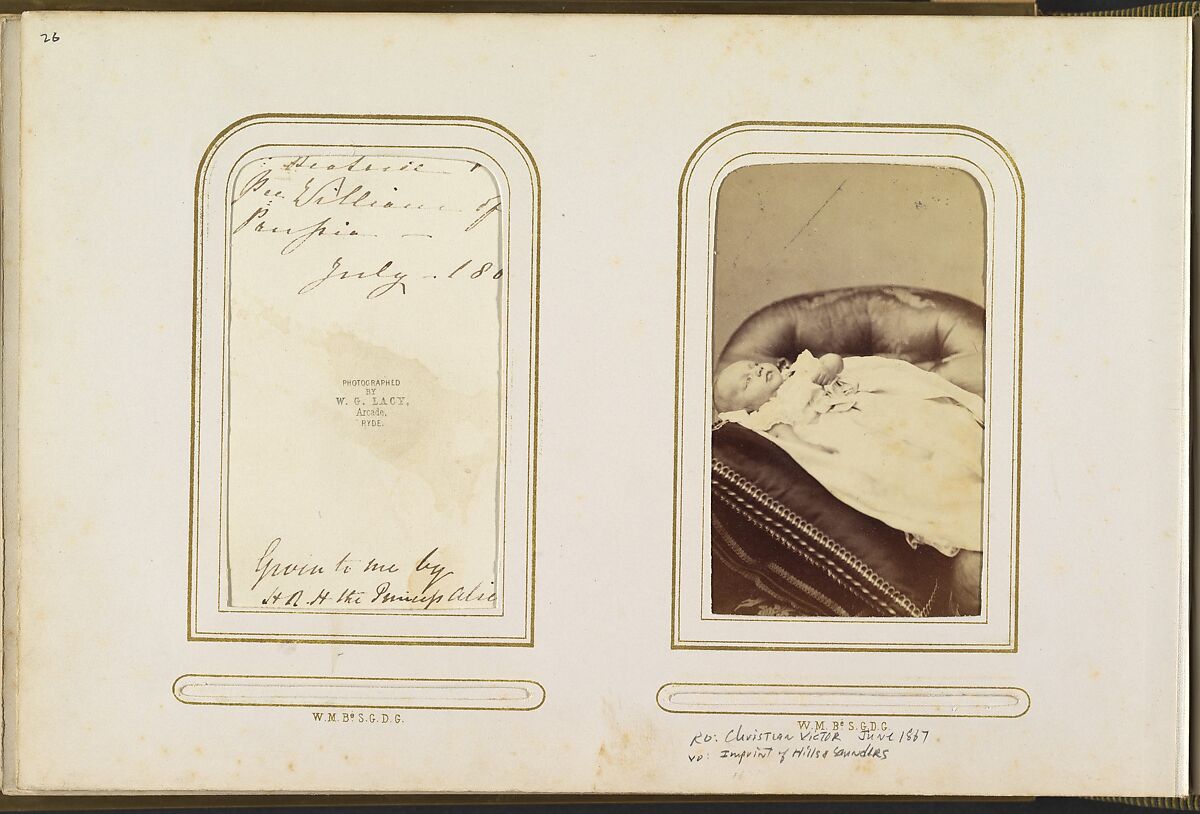 26
Beatrice
Pce William of
Prussia —
July - 186
PHOTOGRAPHED
BY
W. G. LACY,
Arcade,
RYDE.
Given to me by
H R H the Princess Alic
W.M. Bᵗᵉ S.G.D.G.
W.M. Bᵗᵉ S.G.D.G.
RO: Christian Victor June 1867
VO: Imprint of Hills & Saunders